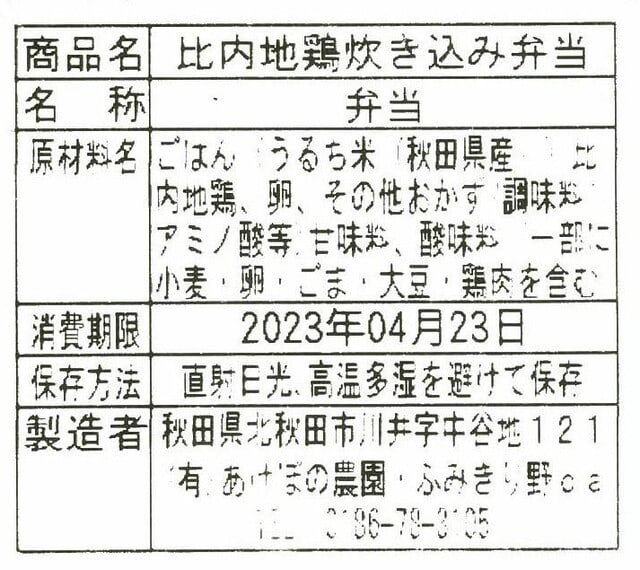 商品名 比内地鶏炊き込み弁当
名 称 弁当
原材料名 ごはん（うるち米（秋田県産））、比
内地鶏、卵、その他おかず（調味料（
アミノ酸等）甘味料、酸味料（一部に
小麦・卵・ごま・大豆・鶏肉を含む
消費期限 2023年04月23日
保存方法 直射日光、高温多湿を避けて保存
製造者 秋田県北秋田市川井字中谷地１２１
（有）あけぼの農園・ふみきり野ｃａ
TEL